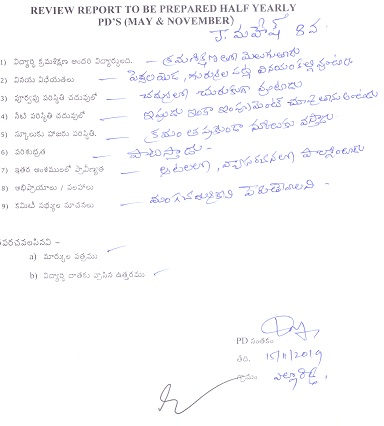 REVIEW REPORT TO BE PREPARED HALF YEARLY
PD'S (MAY & NOVEMBER)
మహేష్ 8వ
1) విద్యార్థి క్రమశిక్షణ అందరి విద్యార్థులంద. — క్రమశిక్షణలగా మెలుగుతాడు
2) వినయ విధేయతలు — పెద్దలయెడ, గురువుల పట్ల వినయం కల్గి వుంటాడు
3) పూర్వపు పరిస్తితి చదువులో — చదువులగా చురుకుగా వుంటాడు
4) నేటి పరిస్తితి చదువులో — ఇప్పుడు ఇంకా ఇంప్రూమెంట్
5) స్కూలుకు హాజరు పరిస్తితి. — క్రమం తప్పకుండా స్కూలుకు వస్తాడు
6) పరిశుభ్రత — పాటిస్తాడు -
7) ఇతర అంశములలో ప్రావీణ్యత — ఆటలలగా, వ్యాసరచనలగా పాల్గొంటాడు
8) అభిప్రాయాలు / సలహాలు
9) కమిటీ సభ్యుల సూచనలు —
పరచవలసినవి -
a) మార్కుల పత్రము —
b) విద్యార్థి దాతకు వ్రాసిన ఉత్తరము —
PD సంతకం
తేది. 15/11/2019
గ్రామం